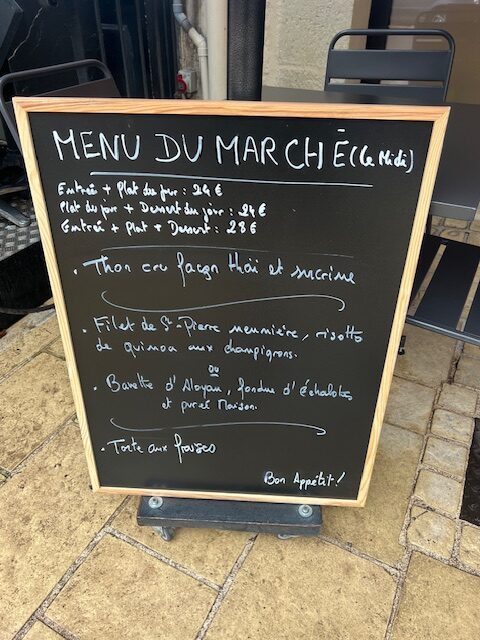 MENU DU MARCHÉ (Le Midi)
Entrée + Plat du jour : 24 €
Plat du jour + Dessert du jour : 24 €
Entrée + Plat + Dessert : 28 €
• Thon cru façon thaï et sucrine
• Filet de St-Pierre meunière, risotto
de quinoa aux champignons.
ou
• Bavette d'Aloyau, fondue d'échalotes
et purée Maison.
• Tarte aux fraises
Bon Appétit !